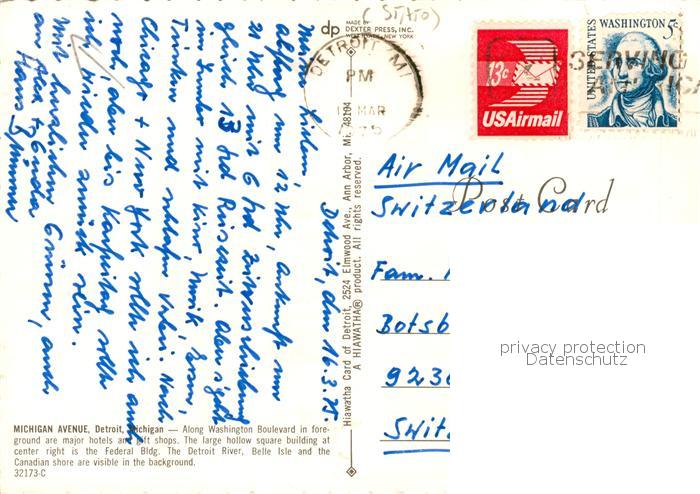 Detroit, den 16.3.75.
12 Uhr, Ankunft um
21 Uhr mit 6 Std Zeitverschiebung
gleich 13 Std Reisezeit. Also
mit Kino, Musik, Essen,
Trinken und schlafen
Chicago + New York sollte ich am
noch, aber bis Karfreitag sollte
ich wieder zurück sein.
Mit herzlichen Grüssen, auch
an
Hans
(STATO)
dp MADE BY
DEXTER PRESS, INC.
WEST NYACK, NEW YORK
DETROIT, MI
PM
MAR
13c
USAirmail
UNITED STATES
WASHINGTON 5c
Post Card
Air Mail
Switzerland
Fam.
Botsb
9230
Swit
privacy protection
Datenschutz
Hiawatha Card of Detroit, 2524 Elmwood Ave., Ann Arbor, Mi. 48104
A HIAWATHA® product. All rights reserved.
MICHIGAN AVENUE, Detroit, Michigan — Along Washington Boulevard in fore-
ground are major hotels and gift shops. The large hollow square building at
center right is the Federal Bldg. The Detroit River, Belle Isle and the
Canadian shore are visible in the background.
32173-C